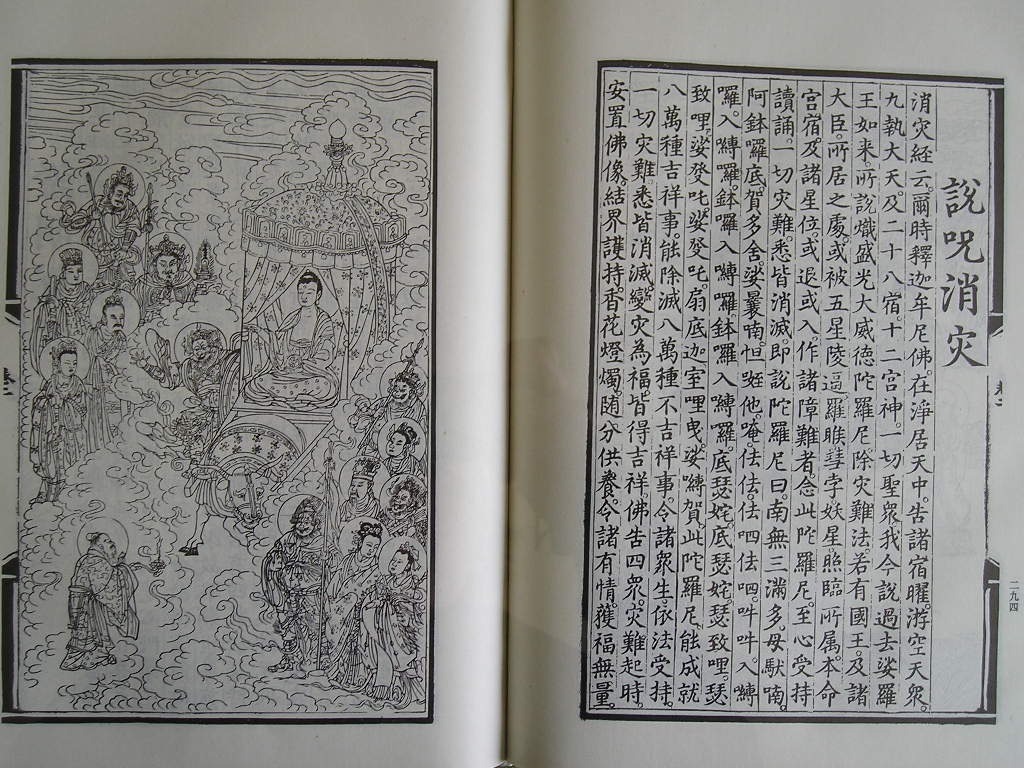 說呪消灾
消灾經云。爾時釋迦牟尼佛。在淨居天中。告諸宿曜。游空天衆。
九執大天。及二十八宿。十二宮神。一切聖衆。我今說過去娑羅
王如來。所說熾盛光大威德陀羅尼。除灾難法。若有國王。及諸
大臣。所居之處。或被五星陵逼。羅睺彗孛妖星。照臨所属本命
宮宿。及諸星位。或退或入。作諸障難者。念此陀羅尼。至心受持
讀誦。一切灾難。悉皆消滅。即說陀羅尼曰。南無三滿多。母馱喃。
阿鉢囉底。賀多舍娑曩喃。怛姪他。唵。佉佉。佉呬佉呬。吽吽。入嚩
囉。入嚩囉。鉢囉入嚩囉。鉢囉入嚩囉。底瑟姹。底瑟姹。瑟致哩。瑟
致哩。娑癹吒。娑癹吒。扇底迦。室哩曳。娑嚩賀。此陀羅尼。能成就
八萬種吉祥事。能除滅八萬種不吉祥事。今諸衆生。依法受持。
一切灾難。悉皆消滅。變灾為福。皆得吉祥。佛告四衆。灾難起時。
安置佛像。結界護持。香花燈燭。随分供養。令諸有情。獲福無量。
二九四